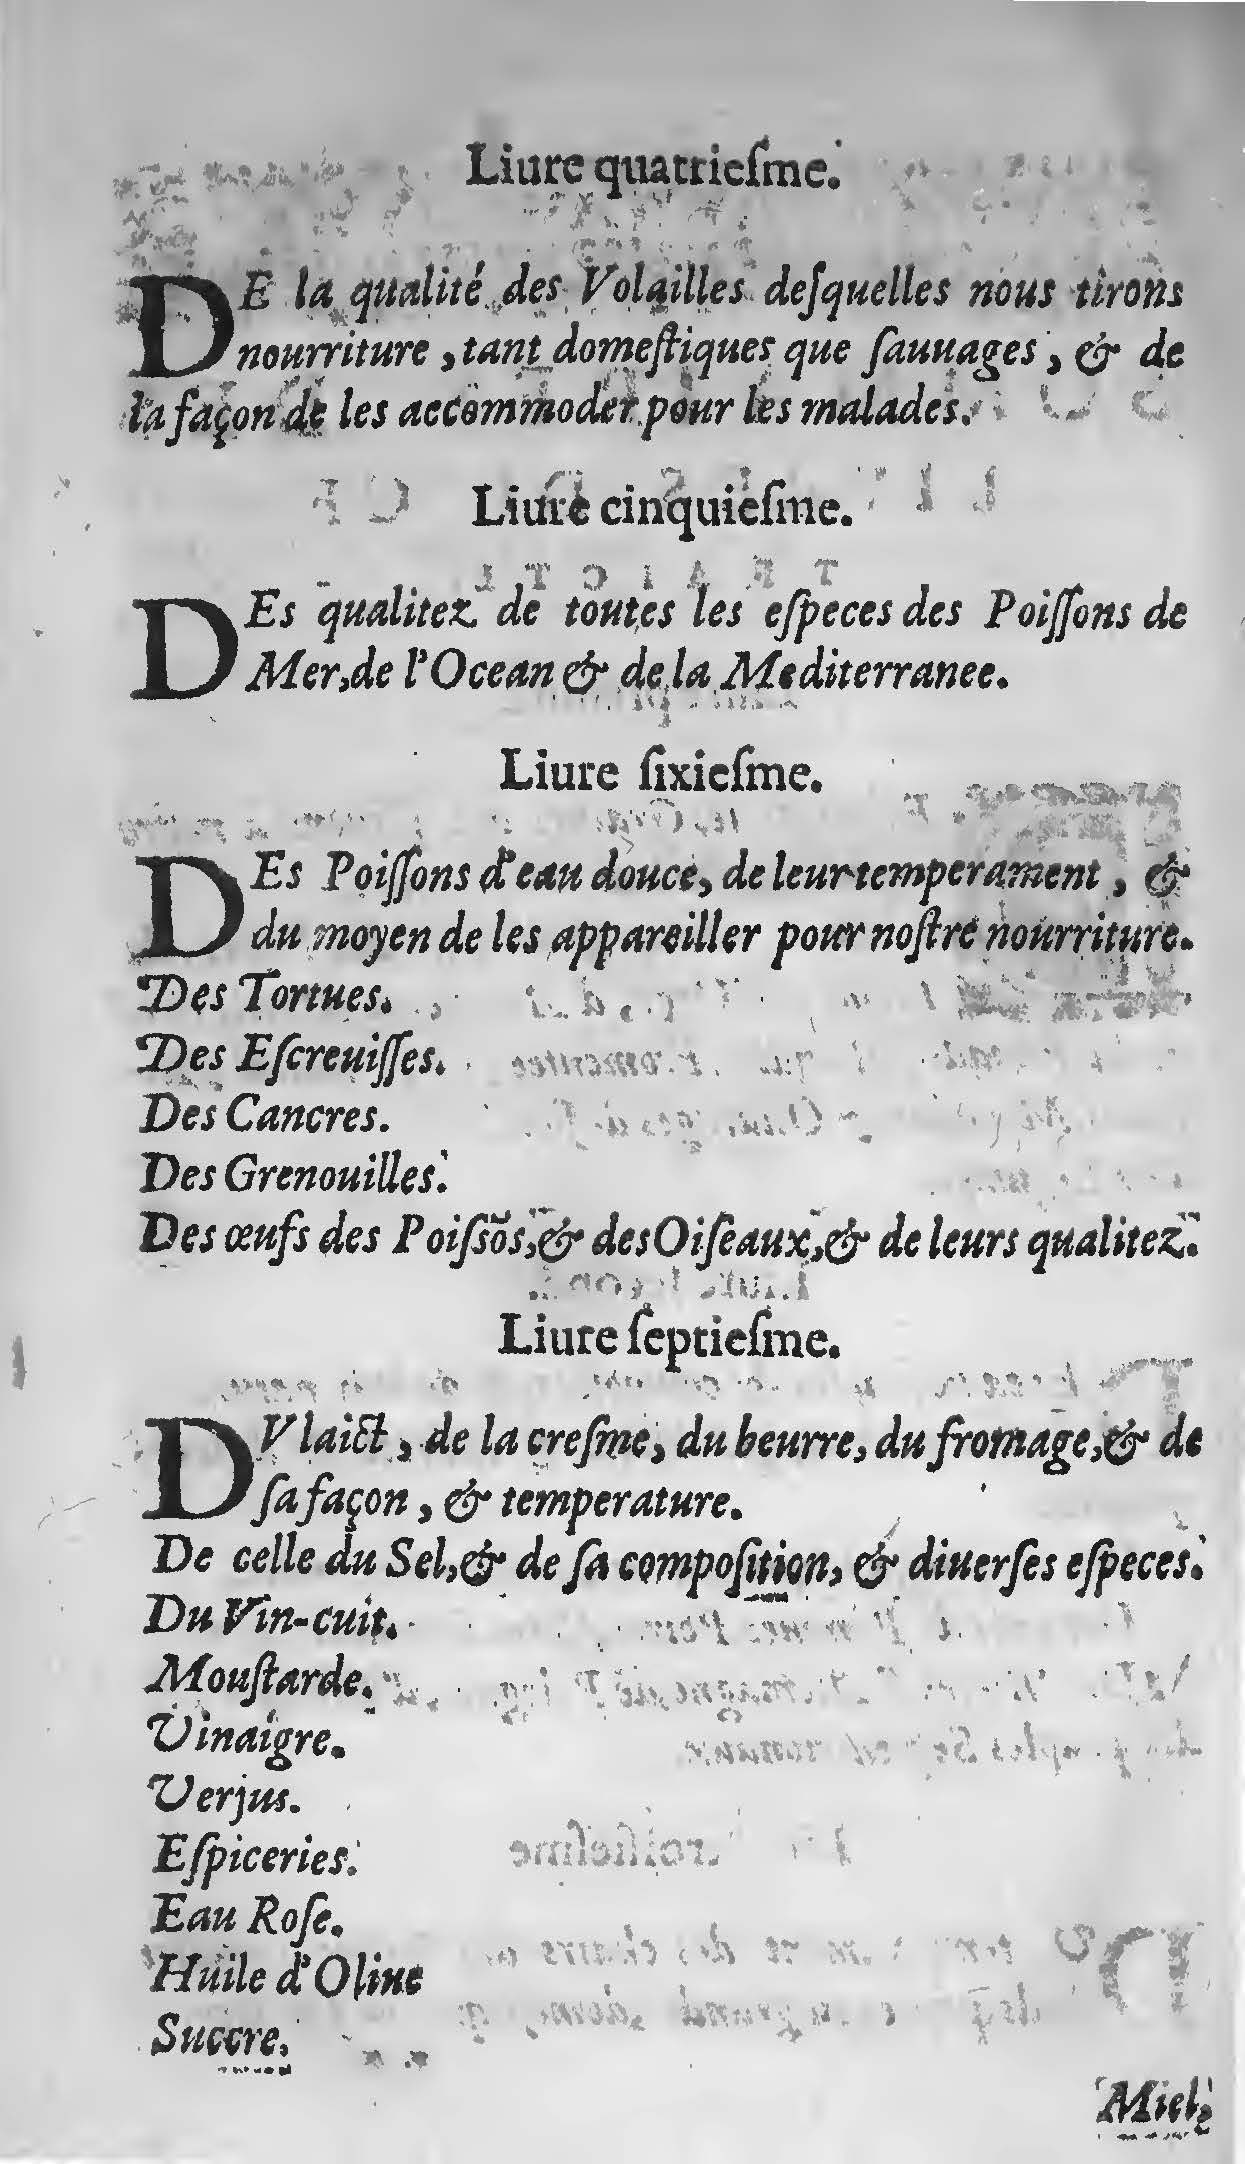 Liure quatriesme.
DE la qualité des Volailles desquelles nous tirons
nourriture, tant domestiques que sauuages, & de
la façon de les accommoder pour les malades.
Liure cinquiesme.
DEs qualitez de toutes les especes des Poissons de
Mer, de l'Ocean & de la Mediterranee.
Liure sixiesme.
DEs Poissons d'eau douce, de leur temperament, &
du moyen de les appareiller pour nostre nourriture.
Des Tortues.
Des Escreuisses.
Des Cancres.
Des Grenouilles.
Des œufs des Poissõs, & des Oiseaux, & de leurs qualitez.
Liure septiesme.
DV laict, de la cresme, du beurre, du fromage, & de
sa façon, & temperature.
De celle du Sel, & de sa composition, & diuerses especes.
Du Vin-cuit.
Moustarde.
Vinaigre.
Verjus.
Espiceries.
Eau Rose.
Huile d'Oliue
Succre.
Miel,